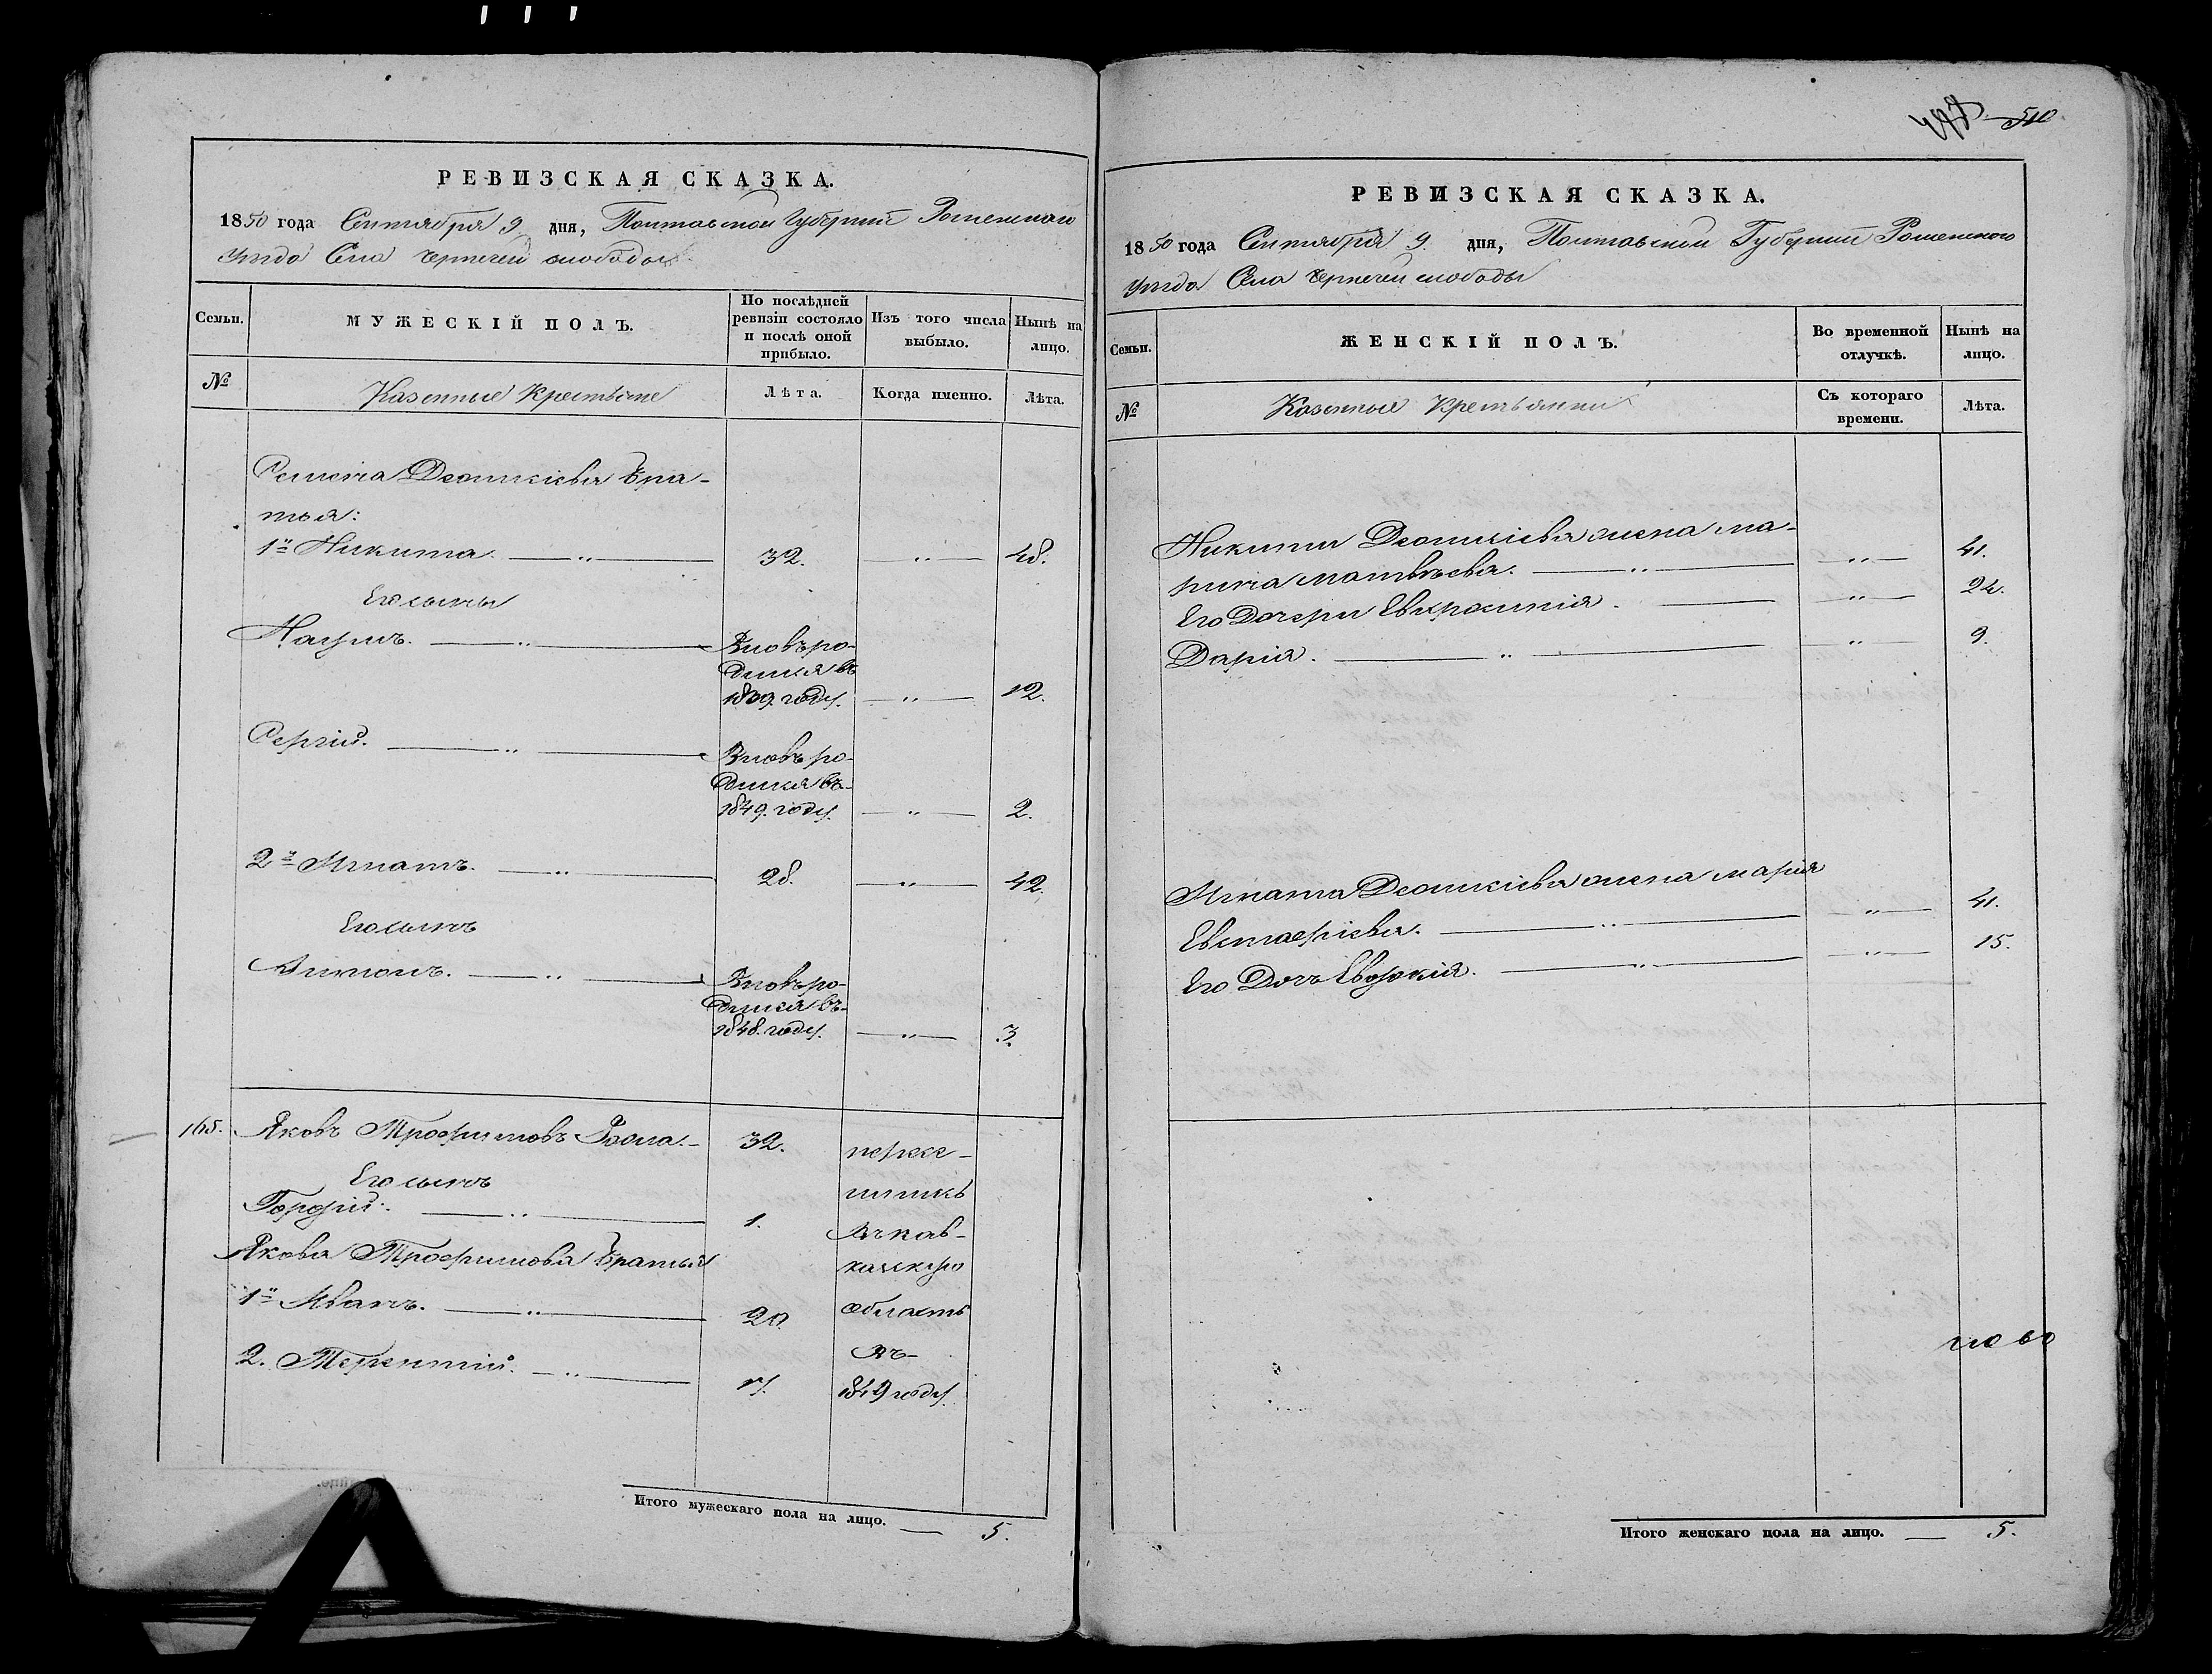 РЕВИЗСКАЯ СКАЗКА.
1850 года Сентября 9 дня, Полтавской Губернии Роменскаго
уезда Села Чернечей слободы
Семьи.
МУЖЕСКІЙ ПОЛЪ.
По послѣдней ревизіи состояло и послѣ оной прибыло.
Изъ того числа выбыло.
Нынѣ на лицо.
№
Казенные Крестьяне
Лѣта.
Когда именно.
Лѣта.
Семена Леонтіева Бра-
тья:
1й Никита. 32. 48.
Его сыны
Наумъ. Вновь ро-
дился въ
1839. году. 12.
Сергій. Вновь ро-
дился въ
1849. году. 2.
2й Игнатъ. 28. 42.
Его сынъ
Вновь ро-
дился въ
1848. году. 3.
165. Яковъ Трофимовъ 32. пересе-
Его сынъ
лились
1.
въ Кав-
Якова Трофимова Братья
казскую
1й Иванъ. 20. область
2. Терентий. въ
1849 году.
Итого мужескаго пола на лицо. 5.
510
РЕВИЗСКАЯ СКАЗКА.
1850 года Сентября 9. дня, Полтавской Губернии Роменского
уезда Села Чернечей слободы
Семьи.
ЖЕНСКІЙ ПОЛЪ.
Во временной отлучкѣ.
Нынѣ на лицо.
№
Казенные Крестьянки
Съ котораго времени.
Лѣта.
Никиты Леонтіева жена Ма-
рина Матвѣева. 41.
Его Дочери Евфросинія. 24.
Дарія. 9.
Игната Леонтіева жена Марія
Евстафіева. 41.
Его Дочь Евдокія. 15.
Итого женскаго пола на лицо. 5.